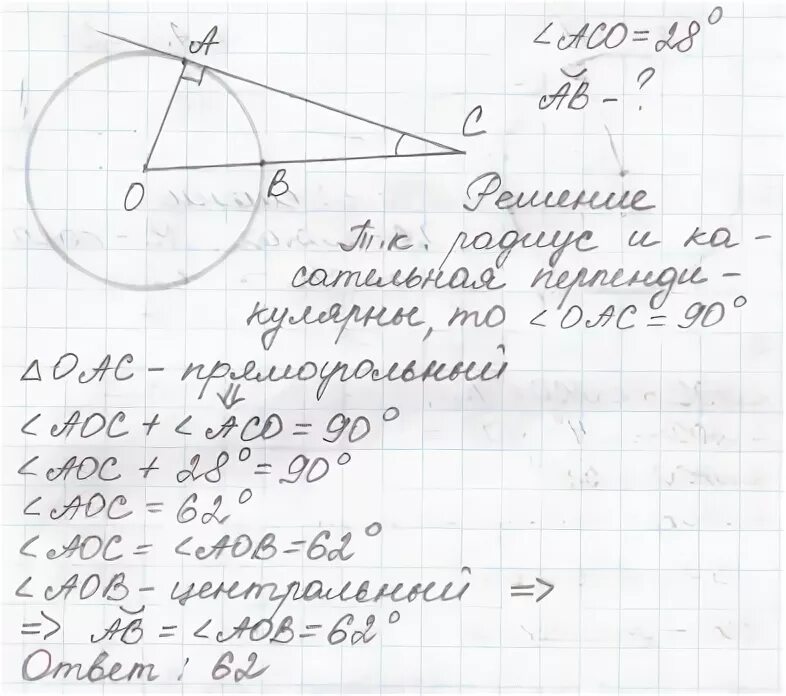 A
C
O
B
∠ACO = 28°
◡AB - ?
Решение
Т.к. радиус и ка-
сательная перпенди-
кулярны, то ∠OAC = 90°
△OAC - прямоугольный
⇓
∠AOC + ∠ACO = 90°
∠AOC + 28° = 90°
∠AOC = 62°
∠AOC = ∠AOB = 62°
∠AOB - центральный =>
=> ◡AB = ∠AOB = 62°
Ответ: 62